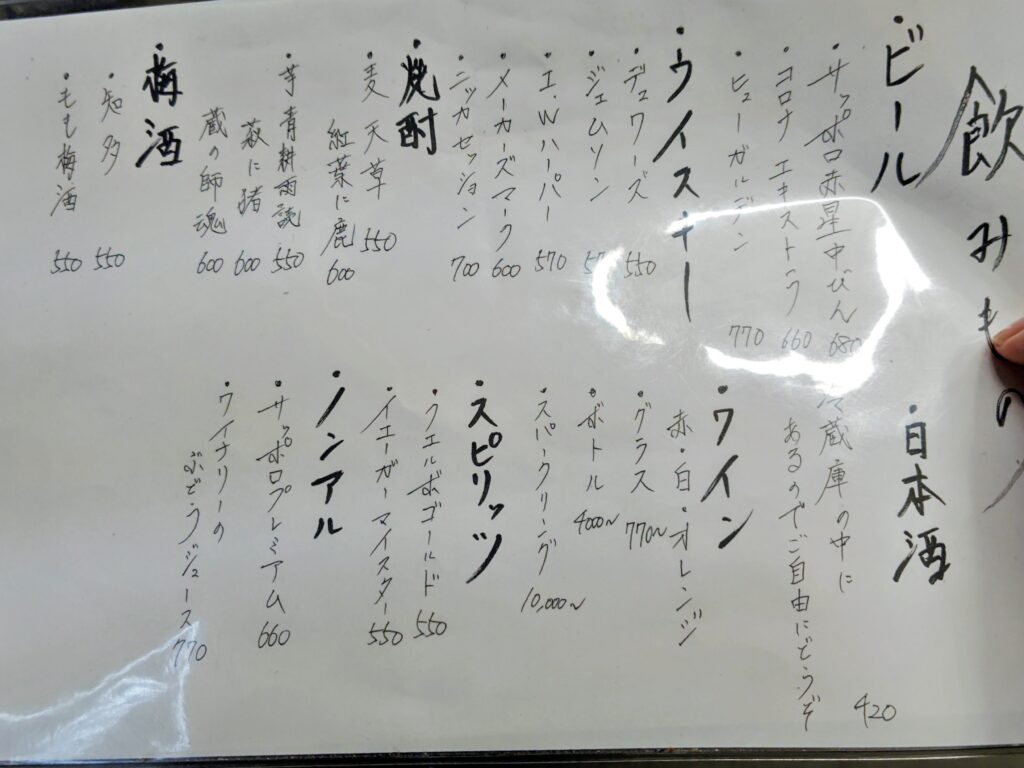 飲みもの
・ビール
・サッポロ赤星中びん 680
・コロナ エキストラ 660
・ヒューガルデン 770
・ウイスキー
・デュワーズ 550
・ジェムソン
・エ.Wハーパー 570
・メーカーズマーク 600
・ニッカセッション 700
・焼酎
・麦 天草 550
紅葉に鹿 600
・芋 青耕雨読 550
萩に猪 600
蔵の師魂 600
・梅酒
・知多 550
・もも梅酒 550
・日本酒
冷蔵庫の中に
あるのでご自由にどうぞ
420
・ワイン
赤・白・オレンジ
・グラス 770~
・ボトル 4000~
・スパークリング 10,000~
・スピリッツ
・クエルボゴールド 550
・イエーガーマイスター 550
・ノンアル
・サッポロプレミアム 660
・ワイナリーの
ぶどうジュース 770